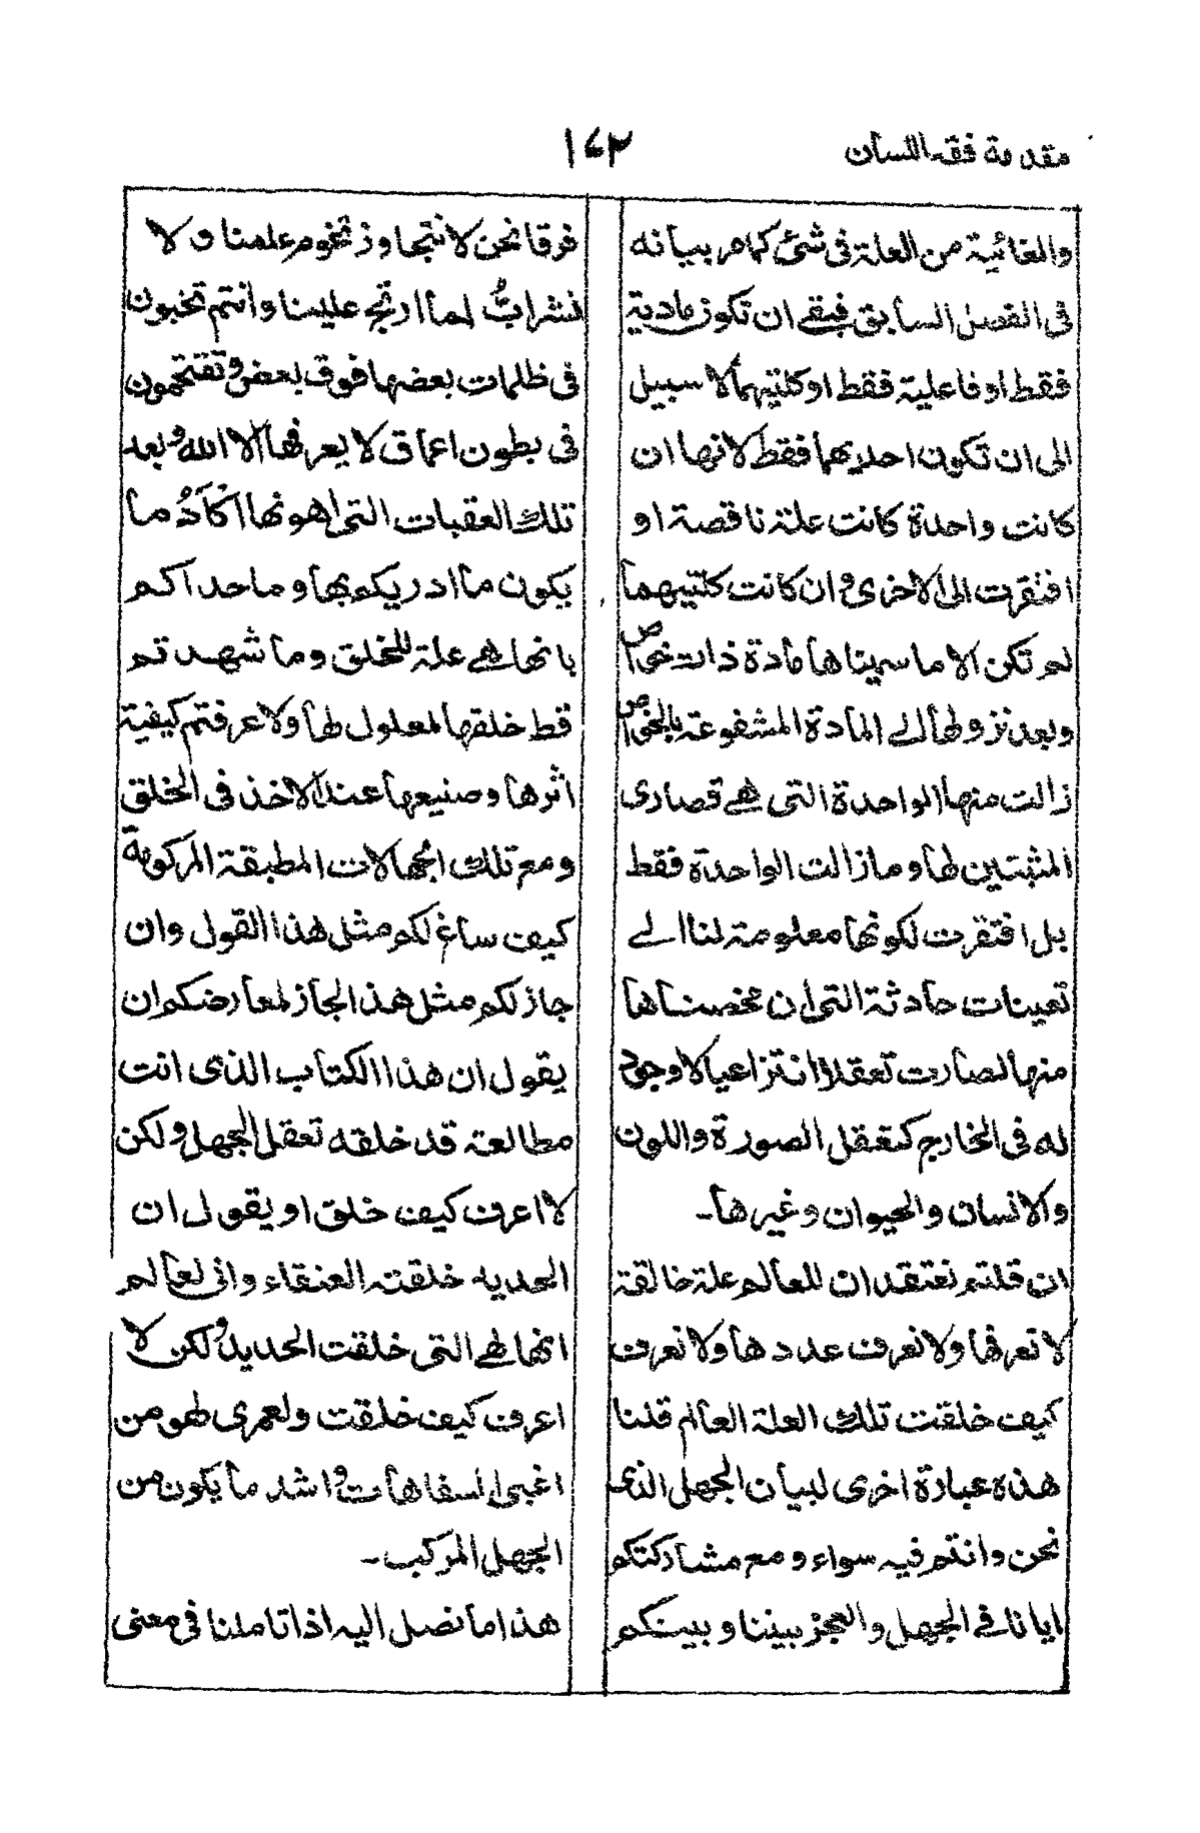 مقدمة فقه اللسان
١٤٢
والغائية من العلة فى شئ كما مر ببيانه
فى الفصل السابق فبقے ان تكون مادية
فقط او فاعلية فقط او كلتيهما لا سبيل
الى ان تكون احدىهما فقط لانها ان
كانت واحدة كانت علة ناقصة او
افتقرت الى الاخرى وان كانت كلتيهما
لم تكن الا ما سميناها مادة ذات خواص
وبعد نزولها الے المادة المشفوعة بالخواص
زالت منها الواحدة التى هے قصارى
المثبتين لها وما زالت الواحدة فقط
بل افتقرت لكونها معلومة لنا الے
تعينات حادثة التى ان محصناها
منها لصارت تعقلا انتزاعيا لا وجود
له فى الخارج كتعقل الصورة واللون
والانسان والحيوان وغيرها۔
ان قلتم نعتقد ان للعالم علة خالقة
لا نعرفها ولا نعرف عددها ولا نعرف
كيف خلقت تلك العلة العالم قلنا
هذه عبارة اخرى لبيان الجهل الذى
نحن وانتم فيه سواء ومع مشاركتكم
ايانا فے الجهل والعجز بيننا وبينكم
فوقا نحن لا نتجاوز تخوم علمنا ولا
نشراب لما ارتج علينا وانتم تخبون
فى ظلمات بعضها فوق بعض وتقتحمون
فى بطون اعماق لا يعرفها الا الله وبعد
تلك العقبات التى اهونها اكأد ما
يكون ما ادريكم بها وما حداكم
بانها هے علة للخلق وما شهدتم
قط خلقها لمعلول لها ولا عرفتم كيفية
اثرها وصنيعها عند الاخذ فى الخلق
ومع تلك الجهالات المطبقة المركومة
كيف ساغ لكم مثل هذا القول وان
جاز لكم مثل هذا لجاز لمعارضكم ان
يقول ان هذا الكتاب الذى انت
مطالعه قد خلقه تعقل الجهل ولكن
لا اعرف كيف خلق او يقول ان
الحديد خلقته العنقاء وانى لعالم
انها لهے التى خلقت الحديد ولكن لا
اعرف كيف خلقت ولعمرى لهو من
اغبى السفاهات واشد ما يكون من
الجهل المركب۔
هذا ما نصل اليه اذا تاملنا فى معنى